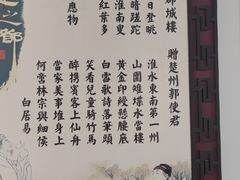 郡城樓
日登眺
暗蹉跎
淮南叟
紅葉多
應物
贈楚州郭使君
淮水東南第一州
山圍雉堞水當樓
黃金印綬懸腰底
白雪歌詩落筆頭
笑看兒童騎竹馬
醉攜賓客上仙舟
當家美事堆身上
何啻林宗與細侯
白居易
之鄉